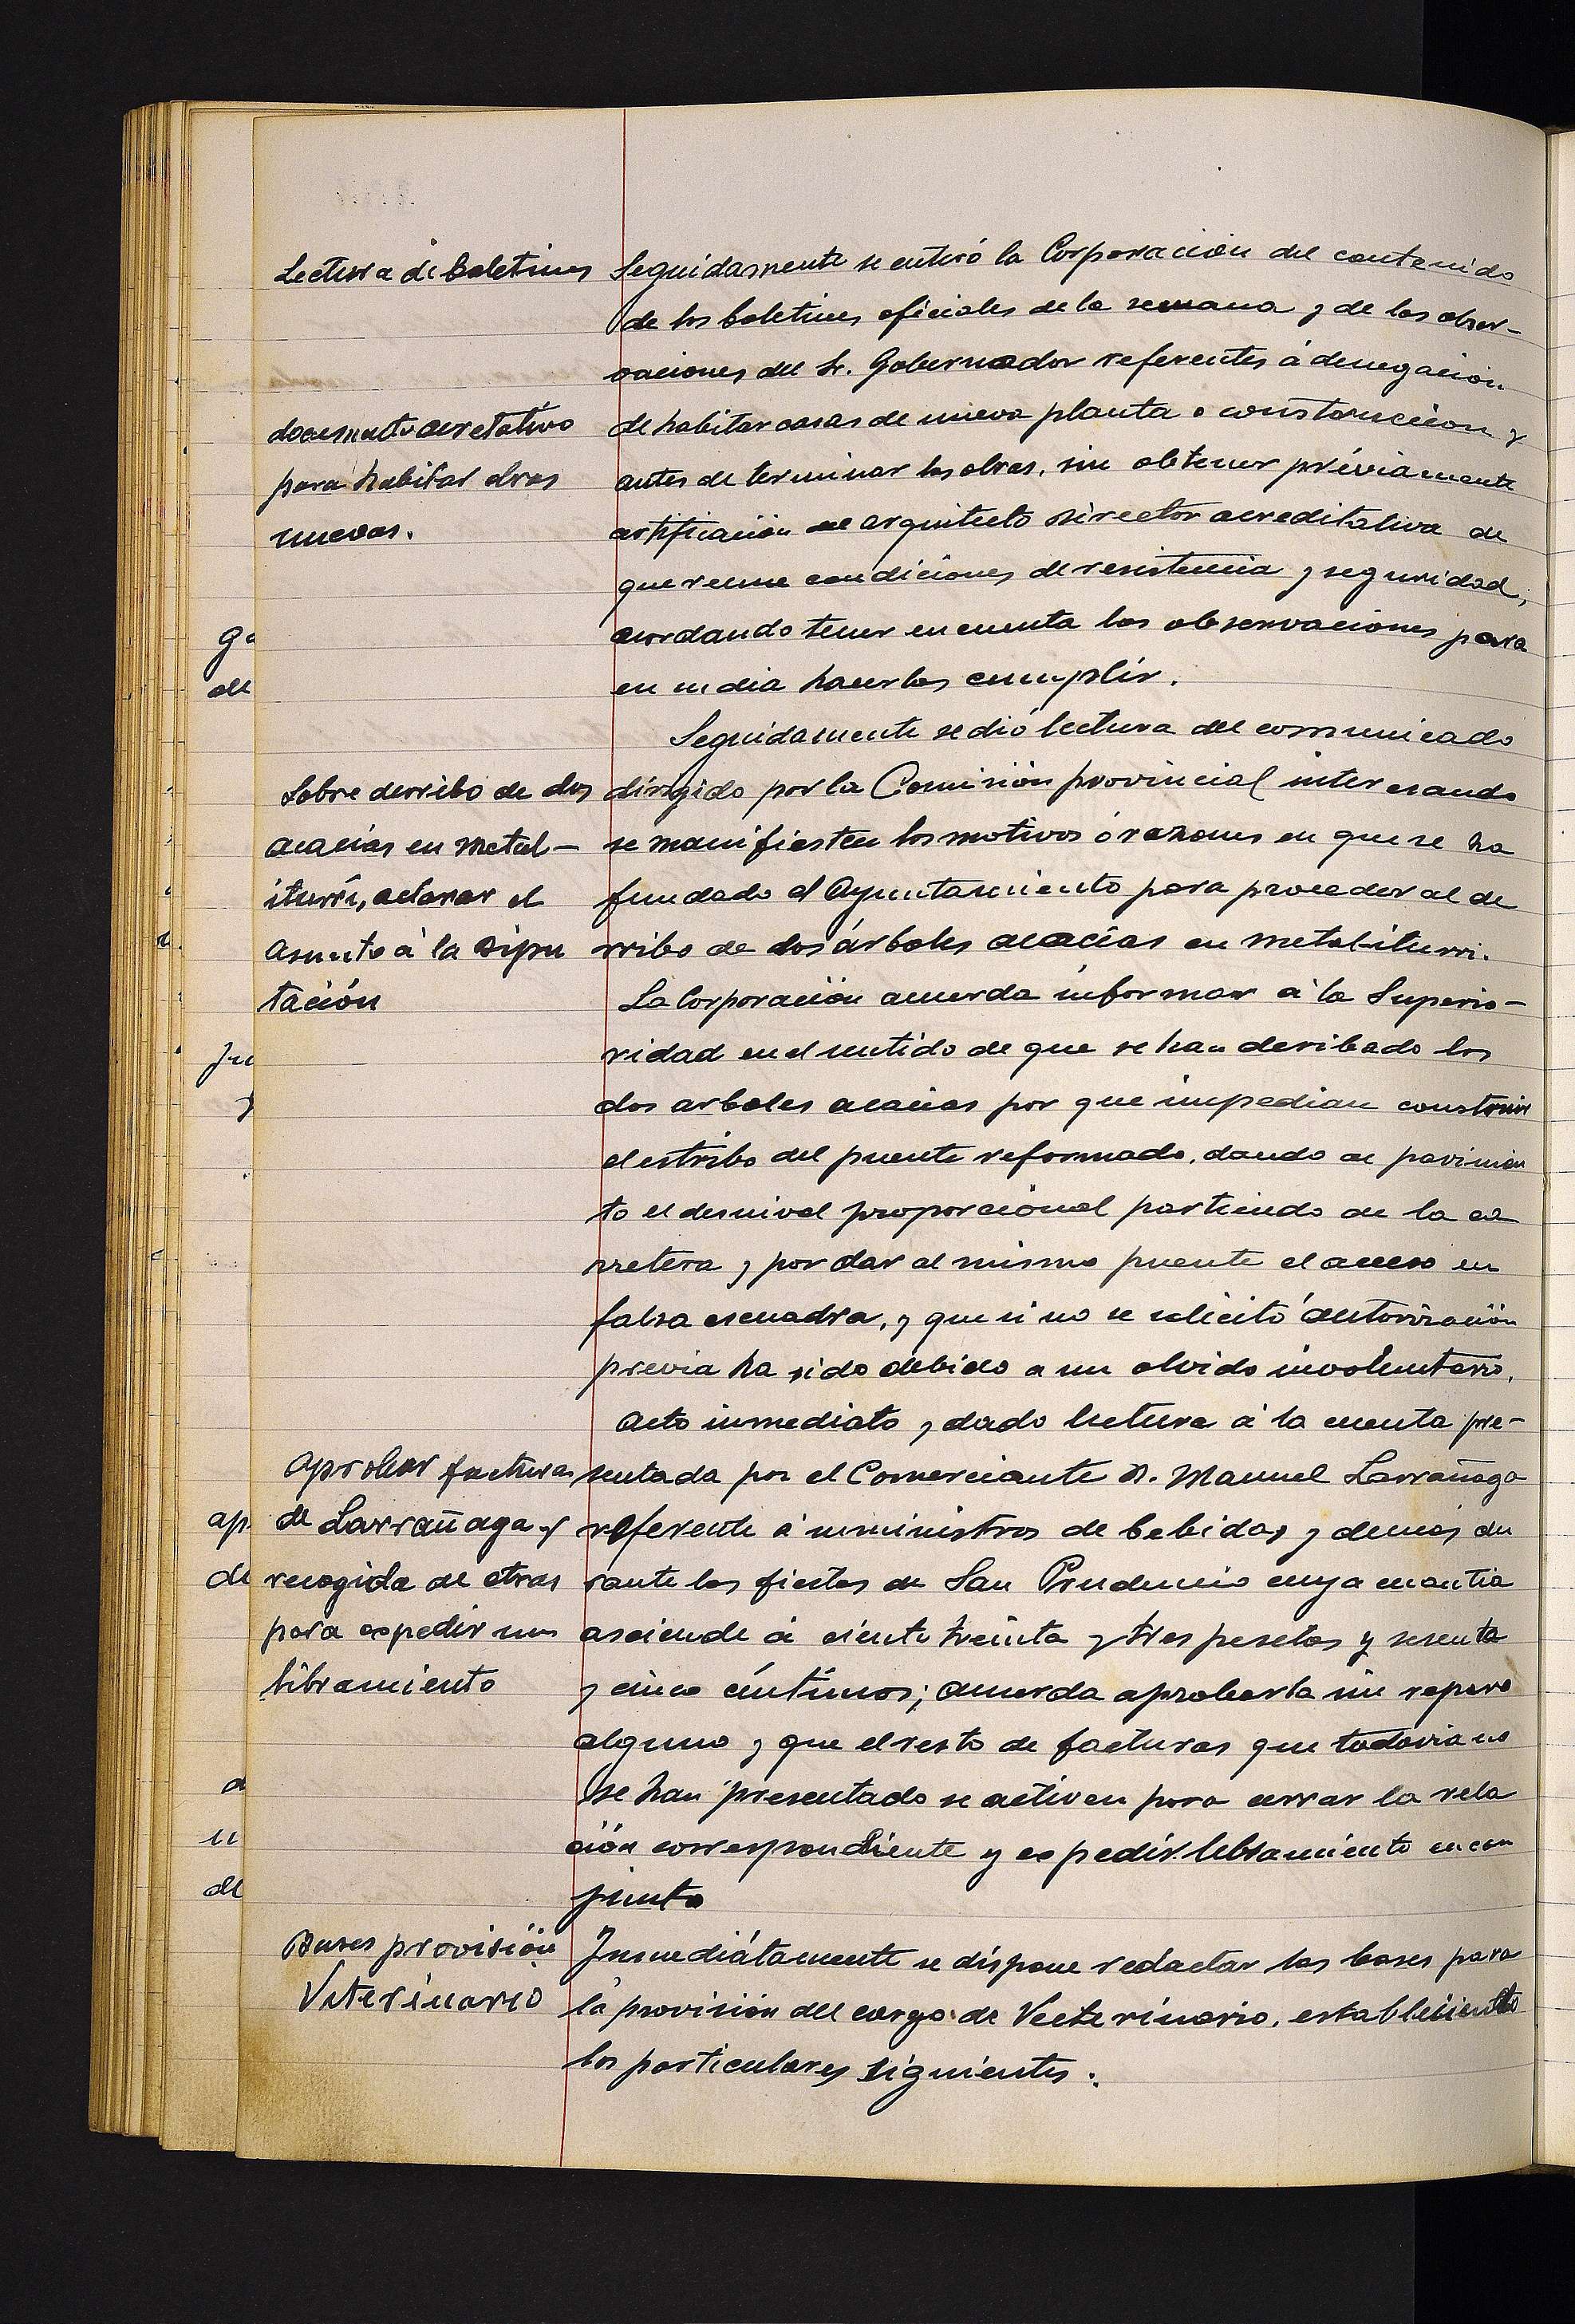 Lectura de Boletines
Seguidamente se enteró la Corporación del contenido
de los boletines oficiales de la semana y de las obser-
vaciones del Sr. Gobernador referentes á denegación
documento acretativo
para habitar obras
nuevas.
de habitar casas de nueva planta o construccion y
antes de terminar las obras, sin obtener préviamente
certificación del arquitecto director acreditativa de
que reune condiciones de resistencia y seguridad;
acordando tener en cuenta las observaciones para
en su dia hacerlas cumplir.
Seguidamente se dió lectura del comunicado
Sobre derribo de dos
acacias en Metal-
iturri, aclarar el
asunto à la Dipu
tación
dirigido por la Comisión provincial interesando
se manifiesten los motivos ó razones en que se ha
fundado el Ayuntamiento para proceder al de
rribo de dos árboles acacias en Metal-iturri.
La Corporación acuerda informar á la Superio-
ridad en el sentido de que se han deribado los
dos arboles acacias por que impedian construir
el estribo del puente reformado, dando al pavimien
to el desnivel proporcional partiendo de la ca
rretera y por dar al mismo puente el acceso en
falsa escuadra, y que si no se solicitó autorización
previa ha sido debido a un olvido involuntario.
Acto inmediato y dado lectura á la cuenta pre-
Aprobar facturas
de Larrañaga y
recogida de otras
para expedir un
libramiento
sentada por el Comerciante D. Manuel Larrañaga
referente á suministros de bebidas y demás du
rante las fiestas de San Prudencio cuya cuantia
asciende á ciento treinta y tres pesetas y sesenta
y cinco céntimos; acuerda aprobarla sin reparo
alguno y que el resto de facturas que todavia no
se han presentado se activen para cerrar la rela
ción correspondiente y expedir libramiento en con
junto
Bases provisión
Veterinario
Inmediátamente se dispone redactar las bases para
la provisión del cargo de Vecterinario, estableciendo
los particulares siguientes: